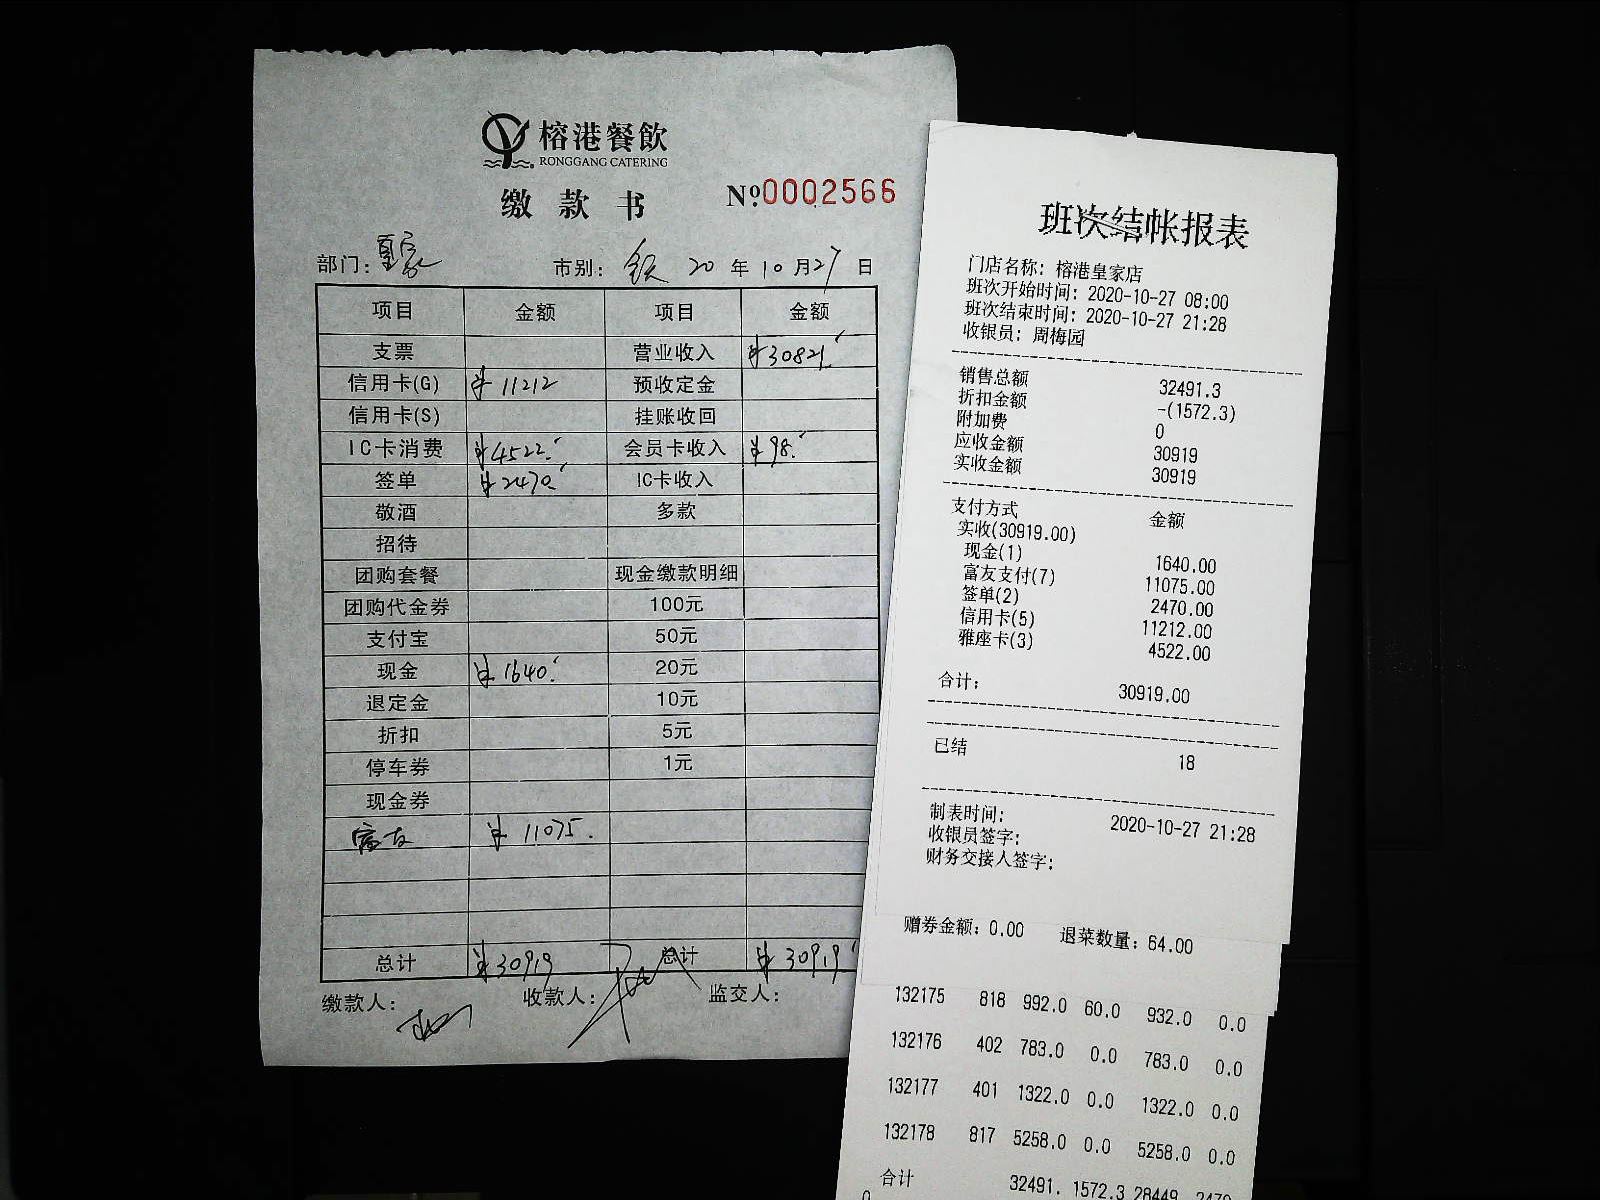 榕港餐飲
RONGGANG CATERING
缴款书
№0002566
部门：皇家 市别： 20年10月27日
项目 金额 项目 金额
支票 营业收入 ¥30821.
信用卡(G) ¥11212 预收定金
信用卡(S) 挂账收回
IC卡消费 ¥4522. 会员卡收入 ¥98.
签单 ¥2470. IC卡收入
敬酒 多款
招待
团购套餐 现金缴款明细
团购代金券 100元
支付宝 50元
现金 ¥1640. 20元
退定金 10元
折扣 5元
停车券 1元
现金券
富友 ¥11075.
总计 ¥30919 总计 ¥30919
缴款人： 收款人： 监交人：
班次结帐报表
门店名称：榕港皇家店
班次开始时间：2020-10-27 08:00
班次结束时间：2020-10-27 21:28
收银员：周梅园
销售总额 32491.3
折扣金额 -(1572.3)
附加费 0
应收金额 30919
实收金额 30919
支付方式 金额
实收(30919.00)
现金(1) 1640.00
富友支付(7) 11075.00
签单(2) 2470.00
信用卡(5) 11212.00
雅座卡(3) 4522.00
合计： 30919.00
已结 18
制表时间： 2020-10-27 21:28
收银员签字：
财务交接人签字：
赠券金额：0.00 退菜数量：64.00
132175 818 992.0 60.0 932.0 0.0
132176 402 783.0 0.0 783.0 0.0
132177 401 1322.0 0.0 1322.0 0.0
132178 817 5258.0 0.0 5258.0 0.0
合计 32491. 1572.3 28449 2470
0